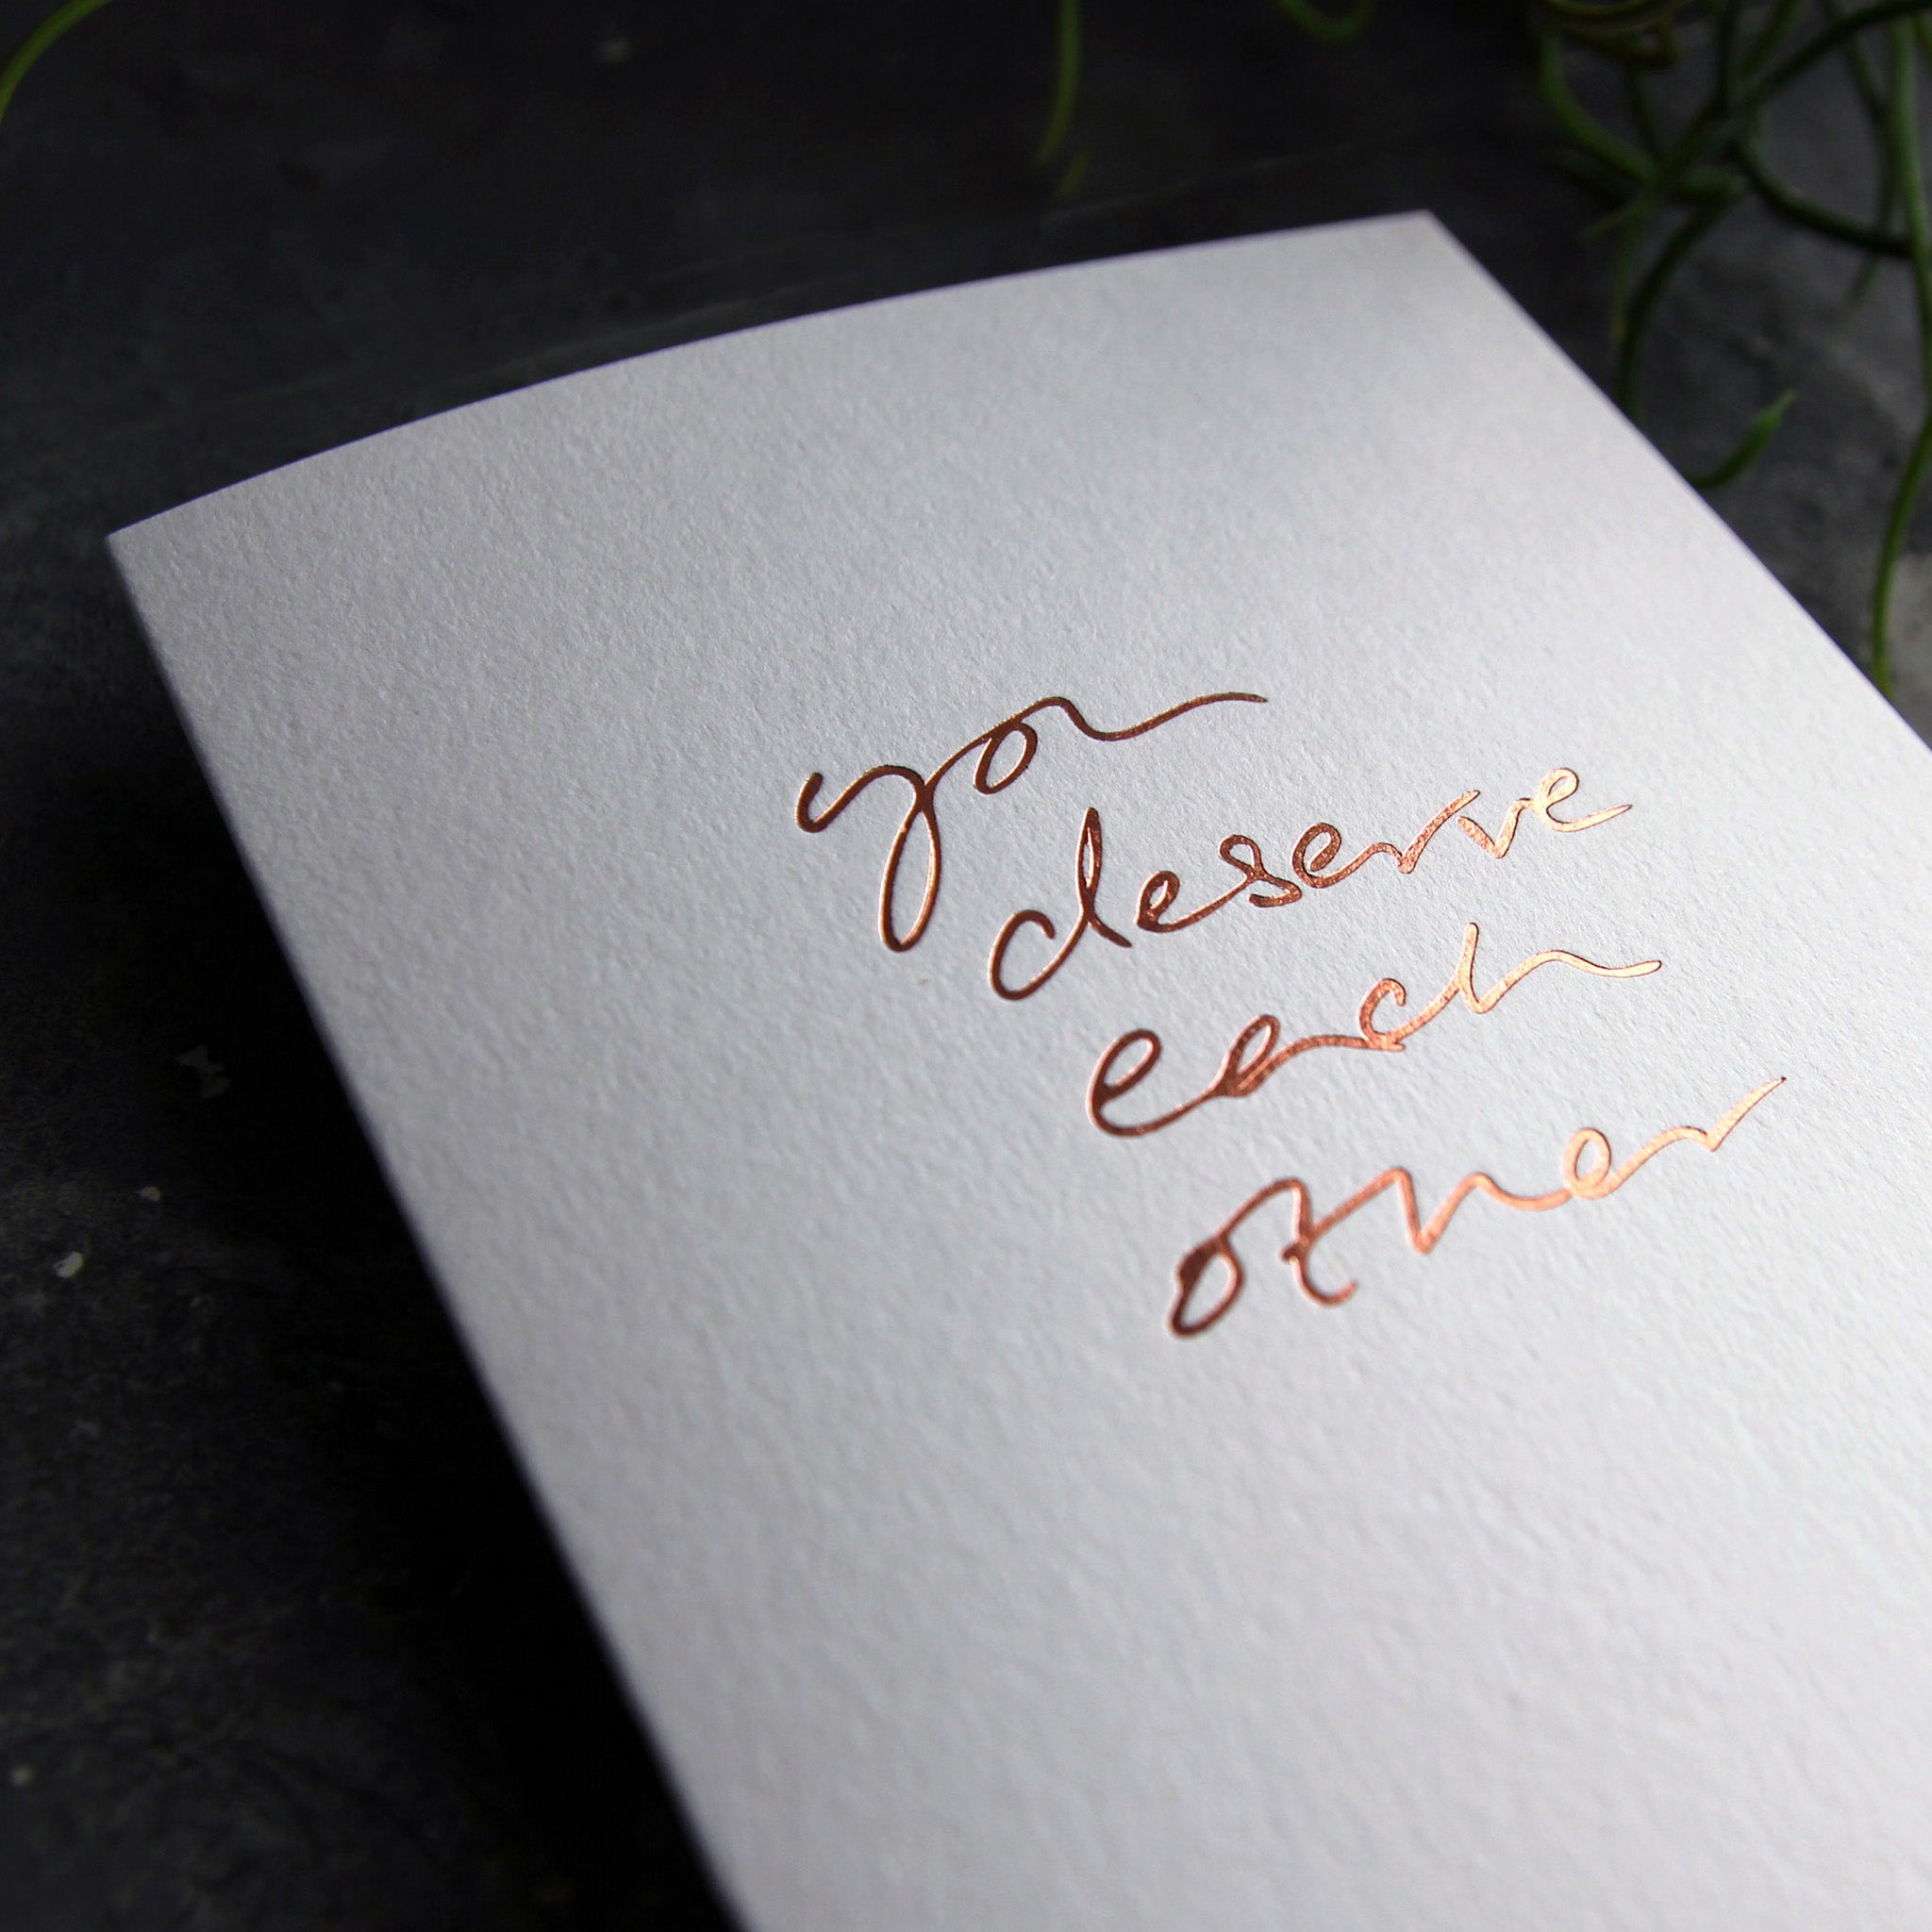 you
deserve
each
other